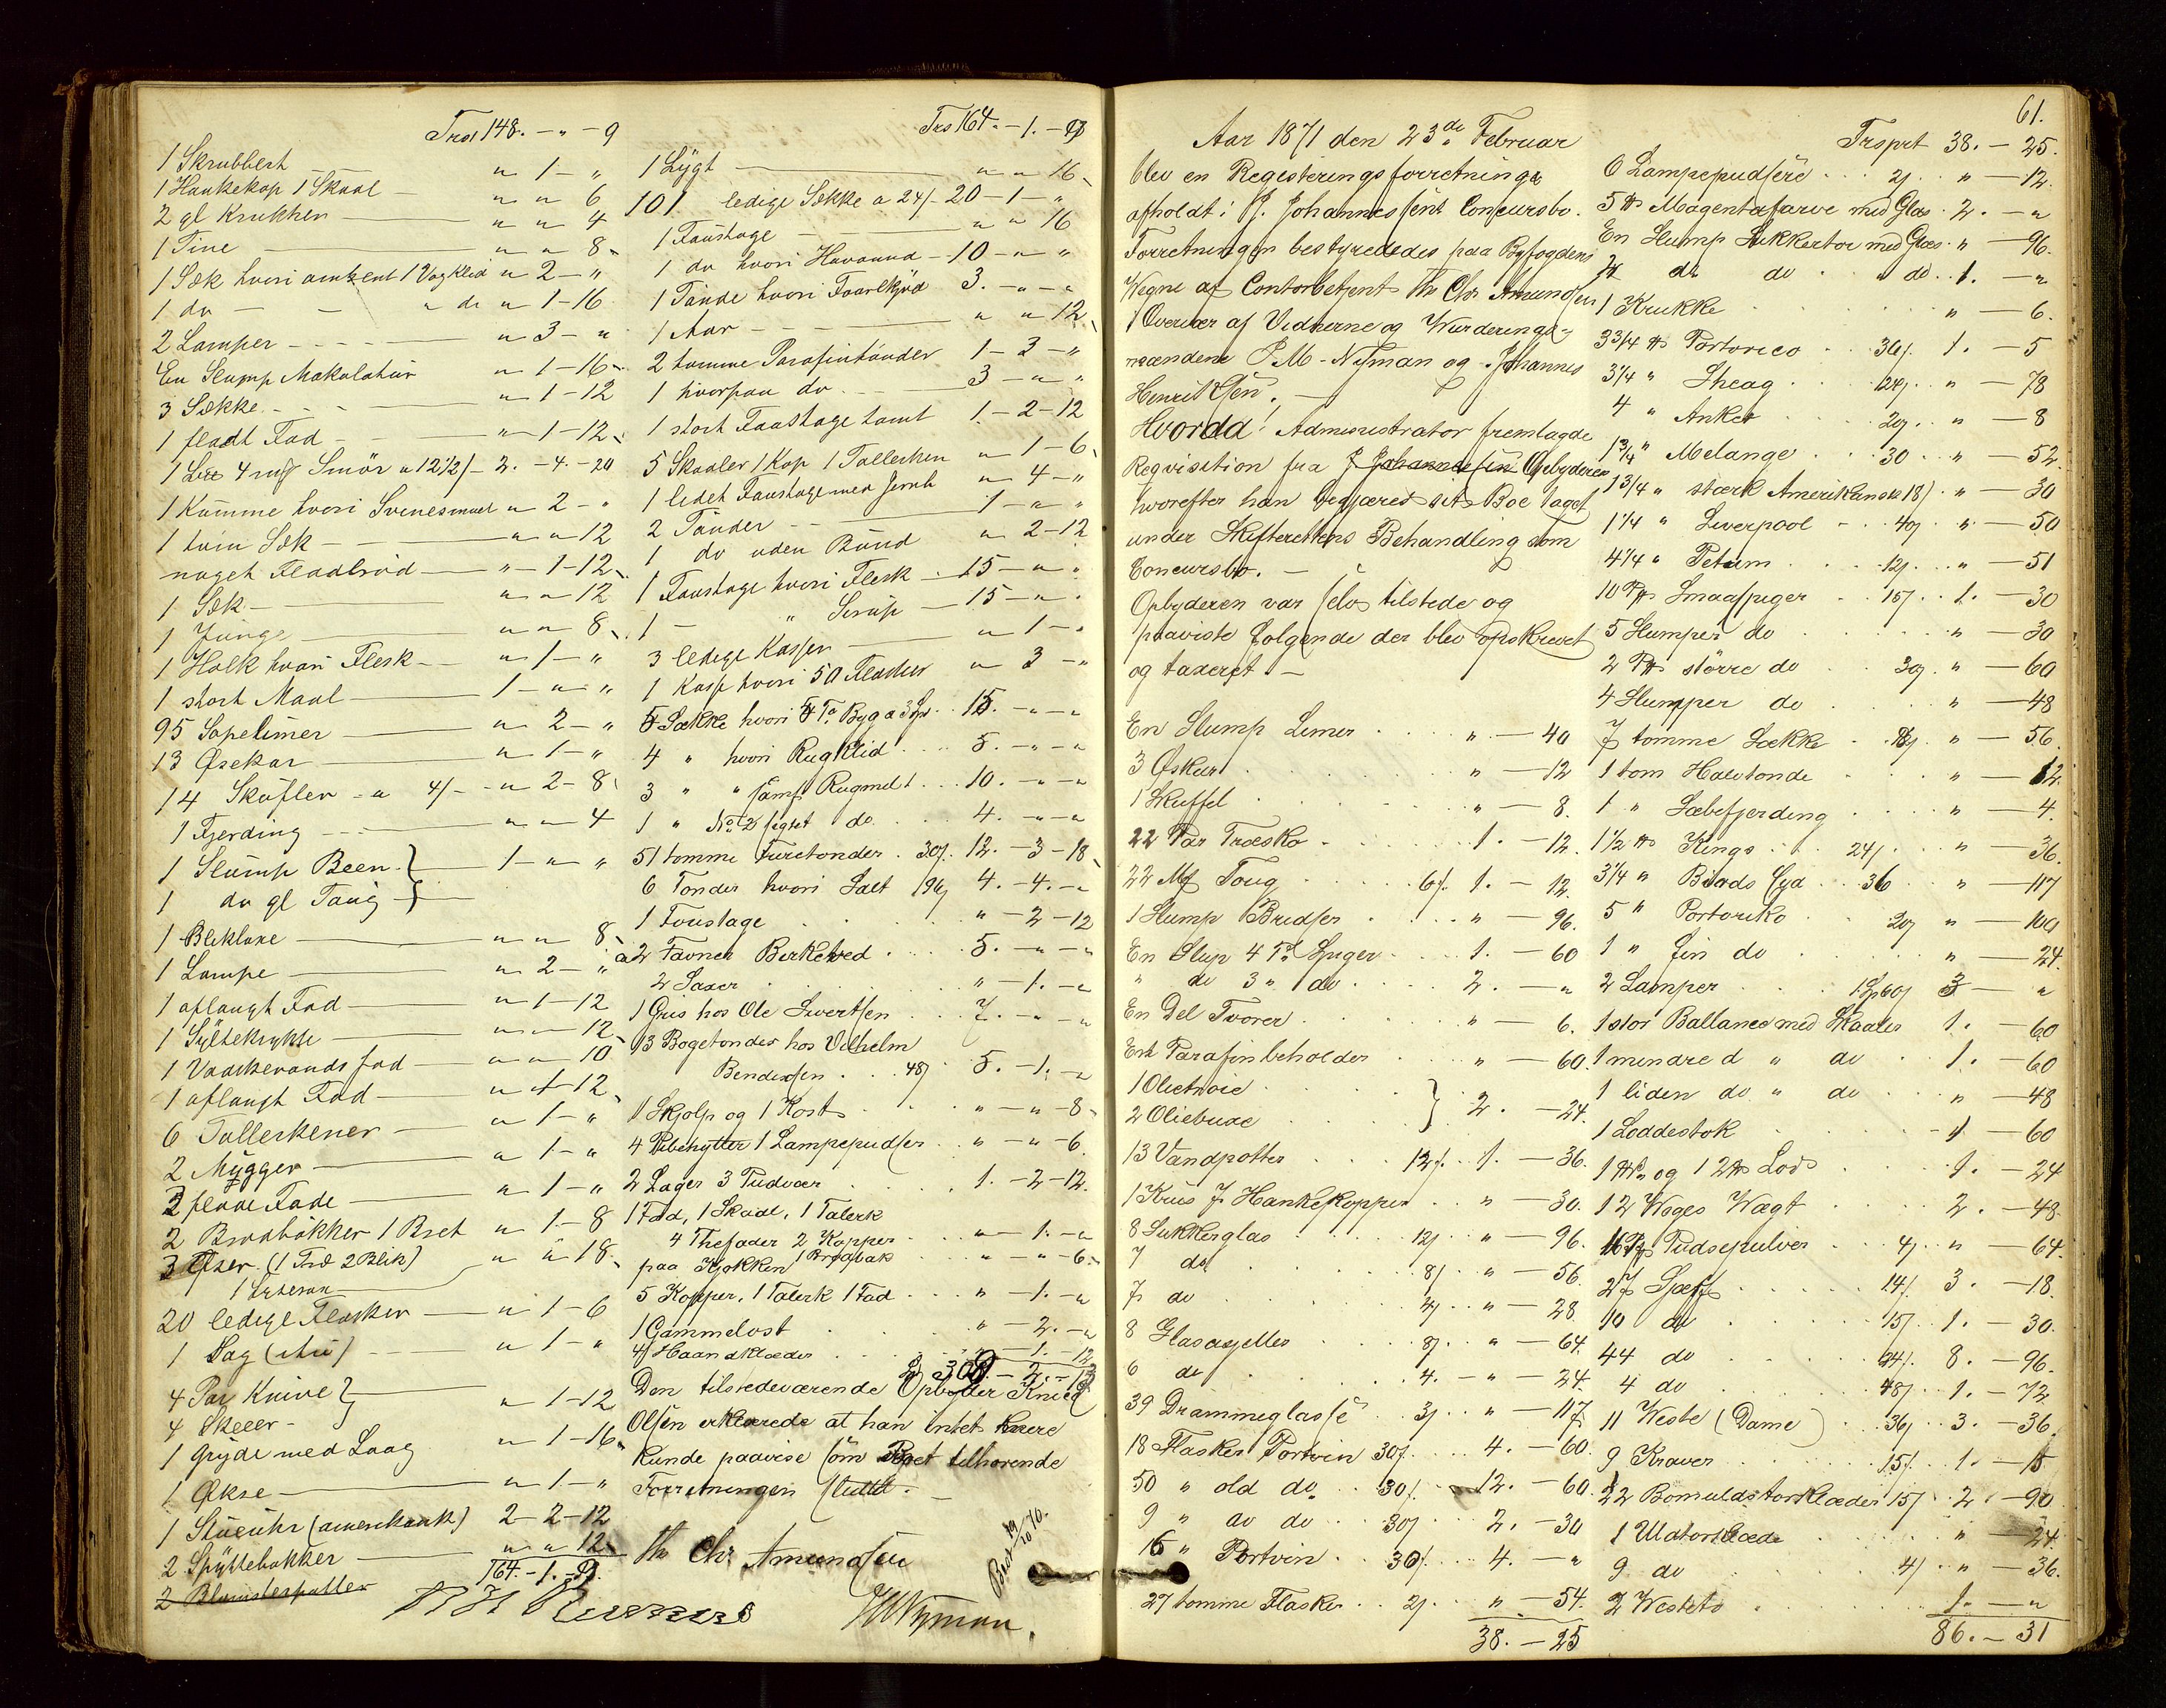 Trsp 148. - " - 9
1 Skrubbert " 1 - "
1 Hankekop 1 Skaal " " 6
2 gl Krukker " " 4
1 Tine " " 8
1 Sæk hvori omtrent 1 Vog Klid " 2 - "
1 do " do " 1 - 16
2 Lamper " 3 - "
En Slump Makulatur " 1 - 16
3 Sække " 1 - 12
1 fladt Fad " 1 - 12
1 4 Smör a 12 1/2/ 2. - 4. - 20
1 Kumme hvori " 2 - "
1 tom Sæk " " 12
noget Fladbröd " 1 - 12
1 Sæk " " 12
1 " " 8
1 Holk hvori Flesk " 1 - "
1 stort Maal 1 - " "
95 Sopelimer " 2 - "
13 Øsekar " 1 - "
14 Skufler a 4/ " 2 - 8
1 Fjerding " " 4
1 Slump Been } 1 - " "
1 do gl Toug }
1 Blikboxe " " 8
1 Lampe " 2 - "
1 aflangt Fad " 1 - 12
1 Syltekrukke " " 12
1 Vaskevandsfad " " 10
1 aflangt Fad " 1 - 12
6 Tallerkener " 1 - "
2 Mugger " 1 - "
3 flade Fade " 1 - "
2 Brødbakker 1 Bret " 1 - 8
3 Øser (1 Træ 2 Blik) " " 18
20 ledige Flasker " 1 - 6
1 Sag " 1 - "
4 Par Knive }
4 Skeer } " 1 - 12
1 Gryde med Laag " 1 - 16
1 Økse " 1 - "
1 Stueuhr (amerikansk) 2 - 2 - 12
2 Spyttebakker " " 12
2 Blomsterpotter 164. - 1. - 9.
Trs 164. - 1. - 9
1 Lygt " " 16
101 ledige Sække a 24/ 20 - 1 - "
1 Faustage " " 16
1 do hvori Havannd 10 - " "
1 Tønde hvori Faarekjød 3. - " - "
1 Aar " " 12
2 tomme Parafintønder 1 - 3 - "
1 hvorpaa do 3 - " "
1 stort Faustage tomt 1 - 2 - 12
5 Skaaler 1 Kop 1 Tallerken " 1 - 6
1 ledet Faustage med Jernb " 4 - "
2 Tønder 1 - " "
1 do uden Bund " 2 - 12
1 Faustage hvori Flesk 15 - " "
1 " Sirup 15 - " "
3 ledige Kasser " 1 - "
1 Kasse hvori 50 Flasker " 3 - "
5 Sække hvori 5 Tr Byg a 3 Sp 15. - " - "
4 " hvori Rugklid 5. - " - "
3 " " sam Rugmel 10. - " - "
1 " No 2 sigtet do 4. - " - "
51 tomme Turetønder 30/. 12. - 3 - 18
6 Tønder hvori Salt 196/ 4. - 4. - "
1 Foustage " - 2 - 12
a 2 Favner Birkeved 5. - " - "
2 Saxer " - 1. - "
1 Gris hos Ole Sivertsen 7. - " - "
13 Bøgetønder hos Vilhelm
Bendixen 48/ 5. - 1. - "
1 Skjolp og 1 Kost " - " - 8
4 Pibehytter 1 Lampepudser " - " - 6
2 Lager 3 Pudvær 1. - 2 - 12.
1 Fad, 1 Skaal, 1 Talerk
4 Thefader 2 Kopper " - 1. - "
paa Kjøkken 1 Brødbak " - " - 6
5 Kopper, 1 Talerk 1 Fad " - 1. - "
1 Gammelost " - 2. - "
4 Haandklæder " - 1. - 12
Den tilstedeværende Opbyder
Olsen erklærede at han intet mere
kunde paavise som Boet tilhørende
Forretningen sluttet.
Th Chr Amundsen
JM Nyman
61.
Aar 1871 den 23de Februar
blev en Registeringsforretning
afholdt i J. Johannessens Concursbo.
Forretningen bestyrededes paa Byfogdens
Vegne af Contorbetjent Th Chr Amundsen
i Overvær af Vidnerne og Vurderings-
mændene J.M. Nyman og Johannes
Henriksen.
Hvorda! Administrator fremlagde
Reqvisition fra J Johannessen Opbyderen
hvorefter han begjæred sit Boe taget
under Skifterettens Behandling som
Concursbo. -
Opbyderen var selv tilstede og
paaviste følgende der blev opskrevet
og taxeret. -
En Slump Limer " - 40
3 Øskar " - 12
1 Skuffel " - 8.
22 Par Træsko 1. - 12.
22 Mk Toug 6/. 1. - 12.
1 Slump Bridser " - 96.
En Slup 4 To Spiger 1. - 60
" do 3 " do 2. - "
En Del Tvorer " - 6.
En Parafinbeholder " - 60.
1 Olietroie }
2 Oliebuxe } 2. - 24.
13 Vandpotter 12/. 1. - 36.
1 Krus 7 Hankekopper " - 30.
8 Sukkerglas 12/ " - 96.
7 do 8/ " - 56.
7 do 4/ " - 28
8 Glasasjetter 8/. " - 64.
6 do 4. - " - 24.
39 Drammeglasse 3/ " - 117
18 Flasker Portvin 30/. 4. - 60.
50 " old do 30/. 12. - 60.
9 " do do 30/ 2. - 30
16 " Portvin 30/. 4. - "
27 tomme Flasker 2/. " - 54.
38. - 25
Trsprt 38. - 25.
6 Lampepudsere 2/. " - 12.
5 ℔ Magentafarve med Glas 2. - "
En Slump Sukkertoi med Glas " - 96.
do do " do 1. - "
1 Krukke " - 6.
3 3/4 ℔ Portorico 36/. 1. - 5
3 1/4 " Sheag 24/. " - 78
4 " Anker 20/. " - 8
1 3/4 " Melange 30 " - 52.
1 3/4 " stærk Amerikansk 18/. " - 30
1 1/4 " Liverpool 40/ " - 50
4 1/4 " Petum 12/. " - 51
10 Smaaspiger 15/. 1. - 30
5 Slumper do " - 30
2 større do 30/. " - 60
4 Slumper do " - 48
7 tomme Sække 8/. " - 56.
1 tom Halvtønde " - 12.
1 " Sæbefjerding " - 4.
1 1/2 ℔ Kings 24/. " - 36.
3 1/4 " Blads 36 " - 117
5 " Portoriko 20/ " - 100
1 " fin do " - 24.
2 Lamper 3 - "
1 stor Ballance med Skaaler 1. - 60
1 mindre d " do 1. - 60
1 liden do " do " - 48
1 Loddestok " - 60
1 ℔ og 1 2℔ Lod 1. - 24
1 2 Voges Vægt 2. - 48.
16 Pudsepulver 4/ " - 64.
27 14/. 3. - 18.
10 do 15/. 1. - 30.
44 do 24/. 8. - 96.
4 do 48/. 1. - 72.
11 Veste (Dame) 36/ 3. - 36.
9 Kraver 15/. 1. - 15
22 Bomuldstørklæder 15/ 2. - 90.
1 Uldtørklæde " - 24.
9 do 4/ " - 36.
2 Vesteto 1. - "
86. - 31